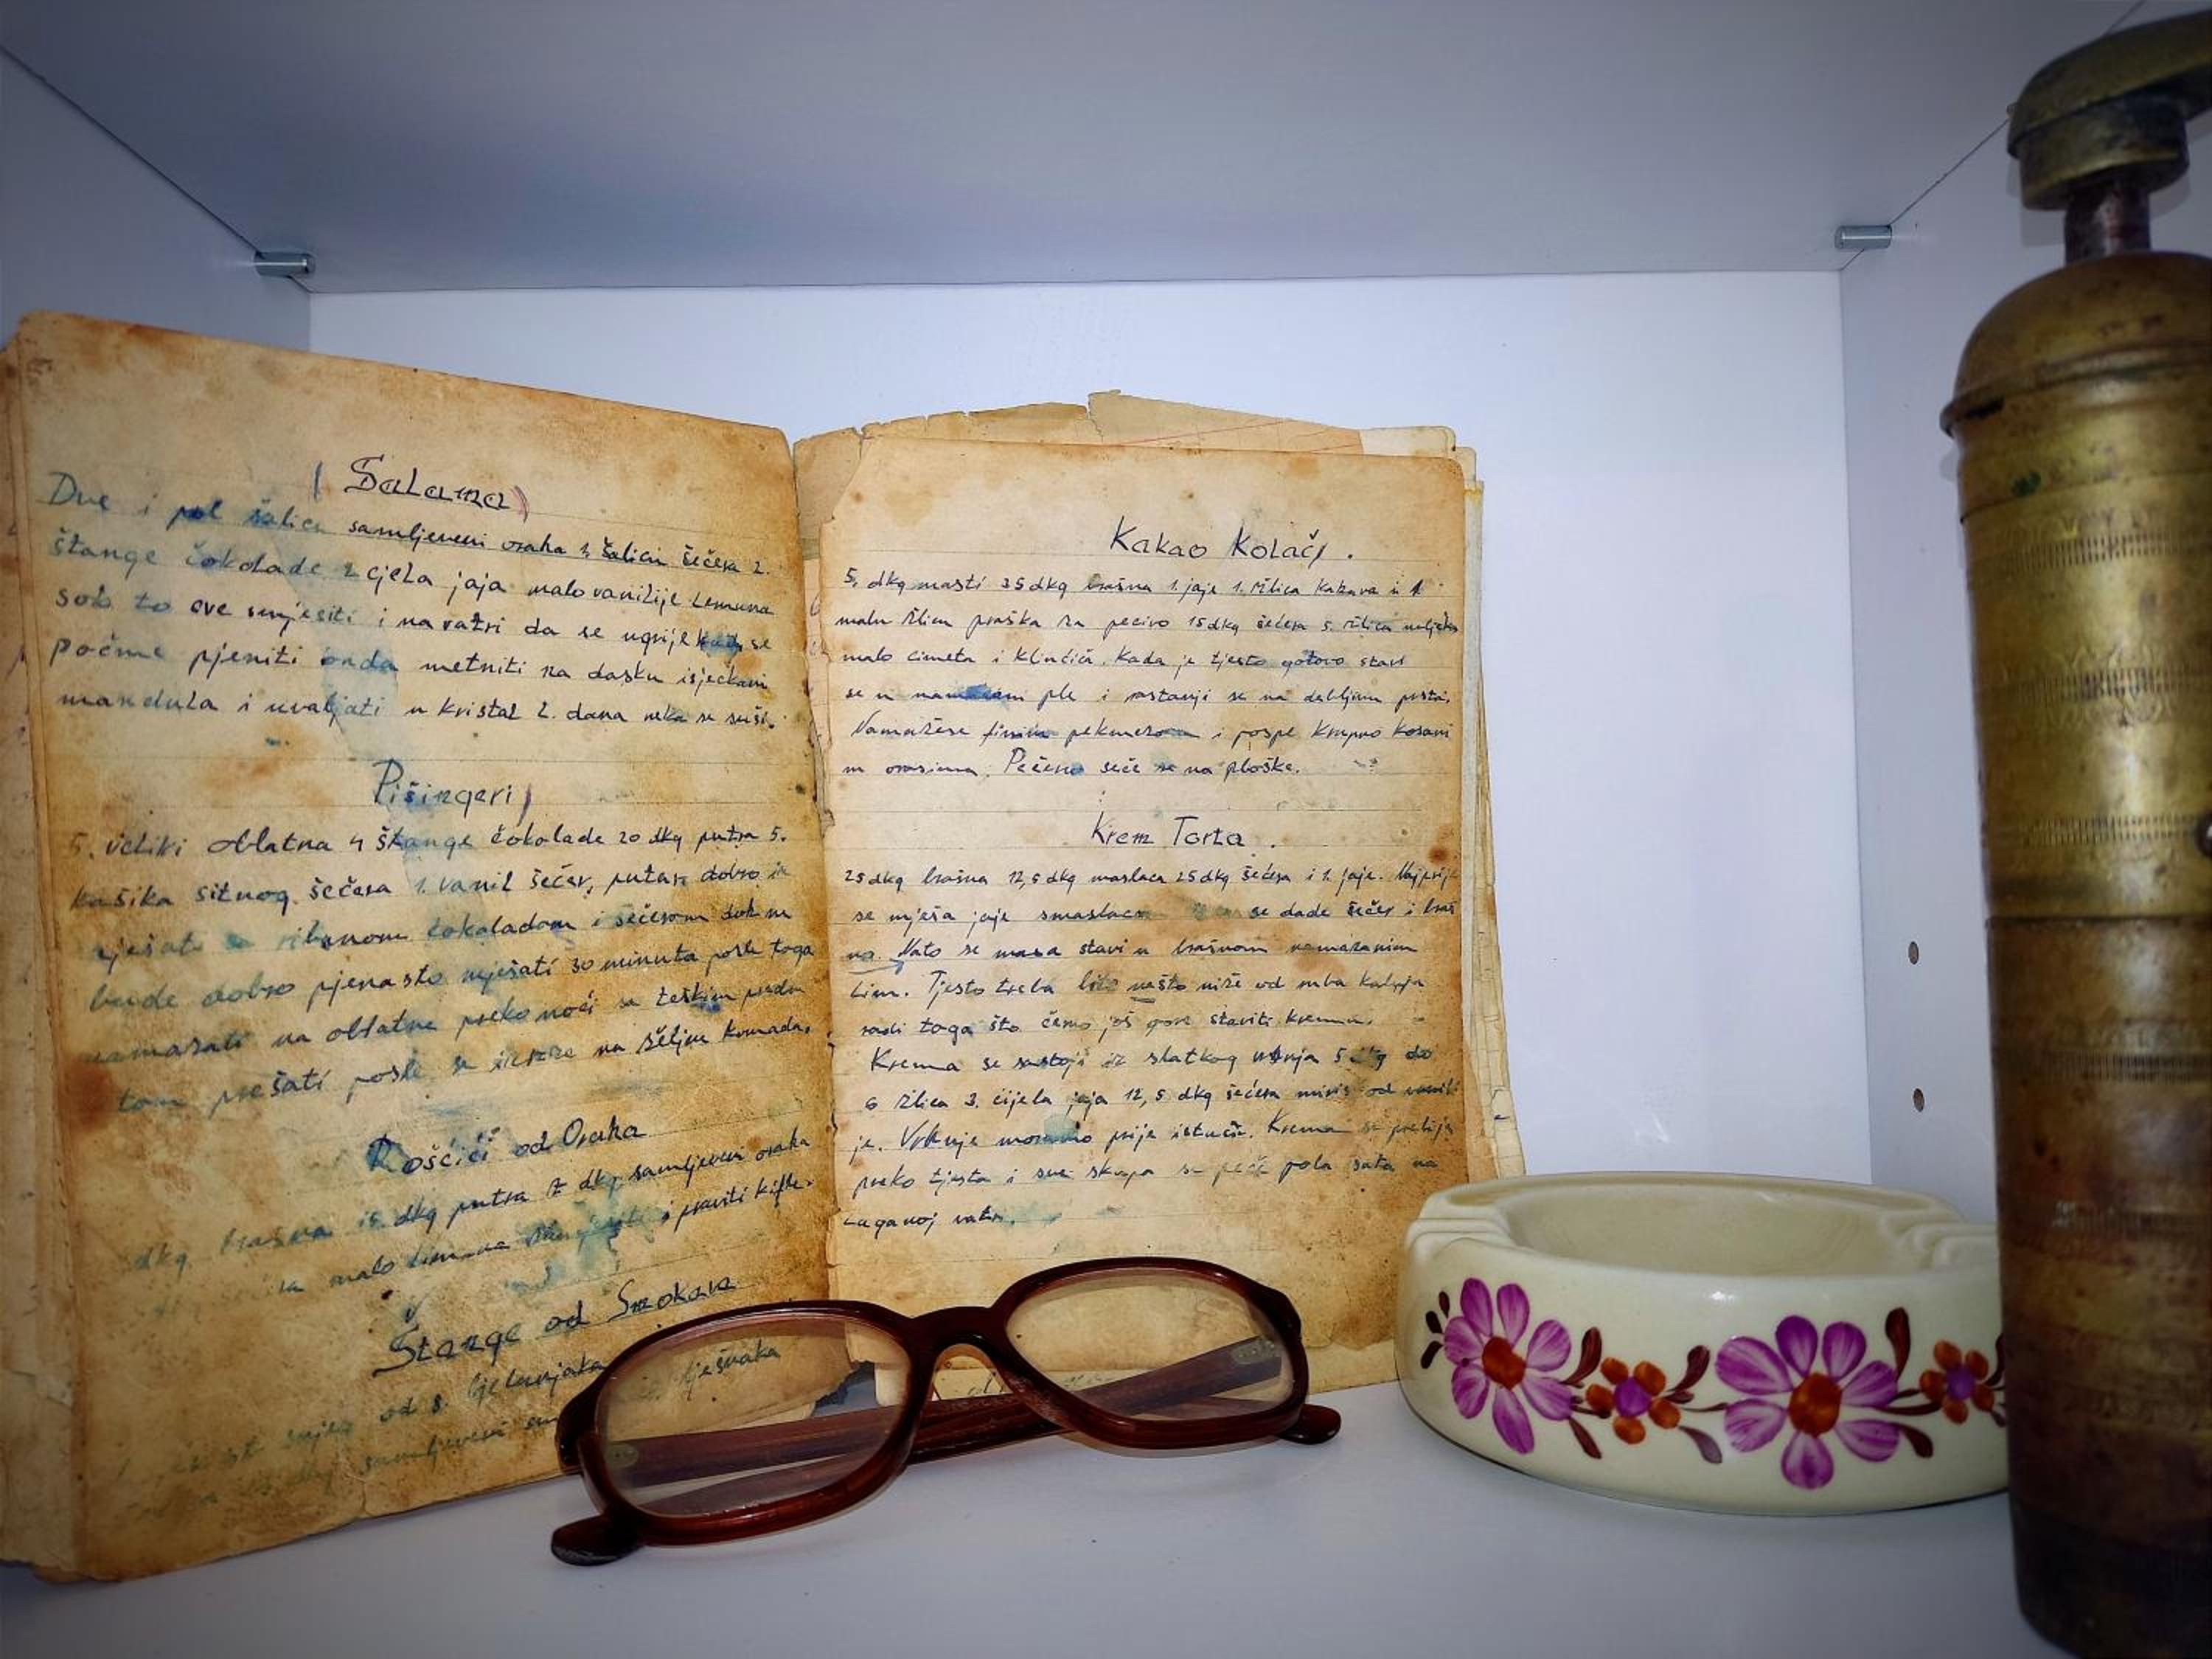 Salama
Dve i pol šalice samljeveni oraha 1 šalicu šečera 2.
štange čokolade 2 cjela jaja malo vanilije Lemuna
sok to sve smjesiti i na vatri da se ugrije kad se
počme pjeniti onda metniti na dasku isjeckani
mandula i uvaljati u kristal 2. dana neka se suši.
Pišingeri
5. veliki oblatna 4 štange čokolade 20 dkg putra 5.
kašika sitnog šečera 1. vanil šečer, putar dobro iz
mješati sa ribanom čokoladom i sečerom dok ne
bude dobro pjenasto mješati 30 minuta posle toga
namazati na oblatne preko noći sa teškim predme
tom prešati posle se izreže na željne komade.
Rošćići od Oraha
dkg brašna 15 dkg putra 7 dkg samljeveni oraha
malo limuna i praviti kifle.
Štange od Smokava
snijeg od 3. bjelanjaka
samljeveni
Kakao Kolači.
5, dkg masti 35 dkg brašna 1. jaje 1. žlica kakava i 1
malu žlicu praška za pecivo 15 dkg šečera 5. žlica mljeka
malo cimeta i klinčića. Kada je tjesto gotovo stavi
se u namazani ple i rastanji se na debljinu prsta.
Namažese finim pekmezom i pospe krupno kosani
m orasima. Pečeno seče se na ploške.
Krem Torta.
25 dkg brašna 12,5 dkg maslaca 25 dkg šečera i 1. jaje. Najprije
se mješa jaje smaslacem se dade šečer i braš
no. Nato se masa stavi u brašnom namazanim
lim. Tjesto treba biti nešto niže od ruba kalupa
radi toga što čemo još gore staviti kremu.
Krema se sastoji iz slatkog vrhnja 5 do
6 žlica 3. cijela jaja 12,5 dkg šečera miris od vanili
je. Vrhnje moramo prije istuči. Krema se prelije
preko tjesta i sve skupa se peče pola sata na
laganoj vatri.